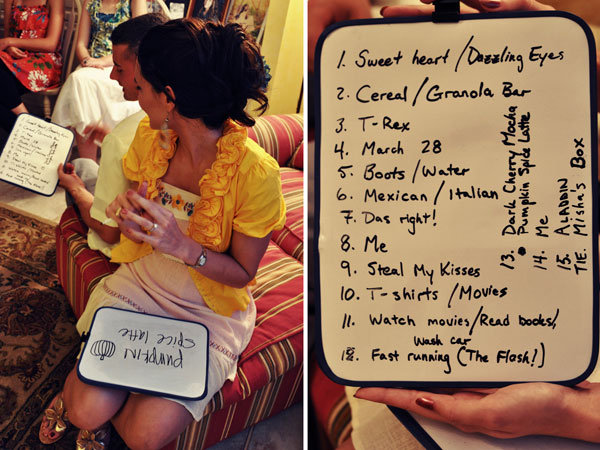 PUMPKIN
Spice latte
1. Sweet heart / Dazzling Eyes
2. Cereal / Granola Bar
3. T-Rex
4. March 28
5. Boots / Water
6. Mexican / Italian
7. Das right!
8. Me
9. Steal My Kisses
10. T-shirts / Movies
11. Watch movies / Read books /
Wash car
12. Fast running (The Flash!)
13. Dark Cherry Mocha
Pumpkin Spice Latte
14. Me
15. ALADDIN
TIE. Misha's Box